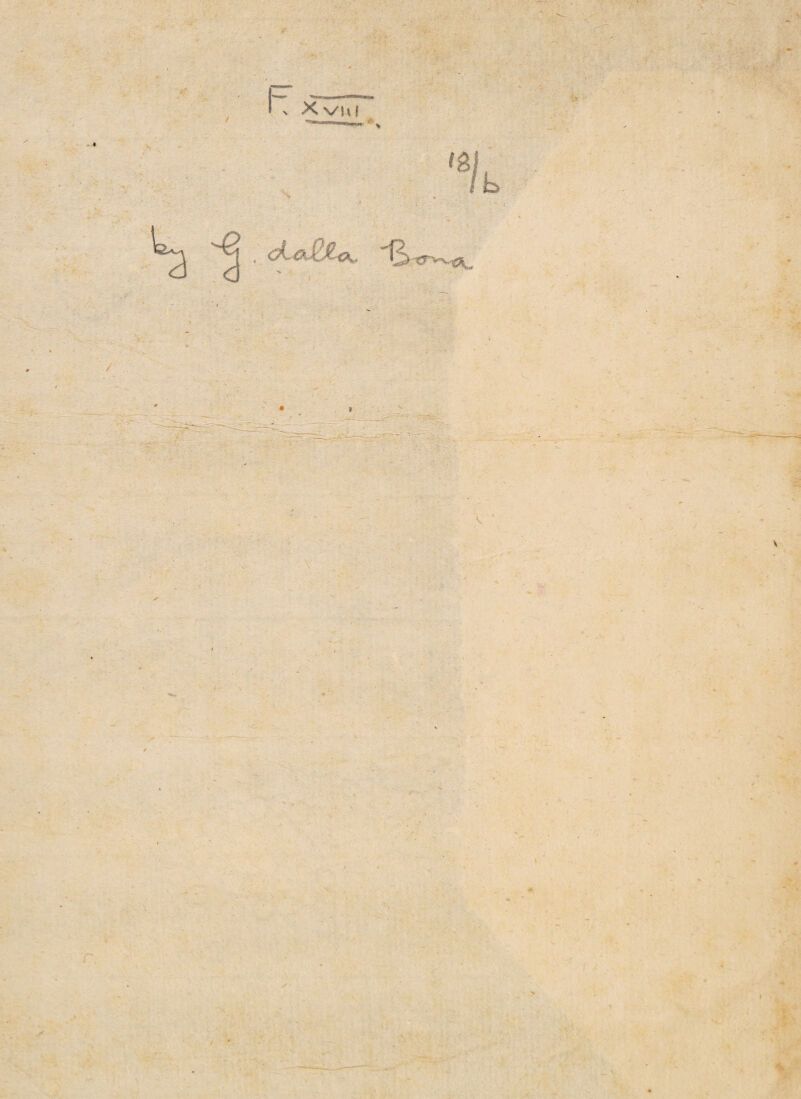 F. XVIII.
18/b
by G. dalla Bona